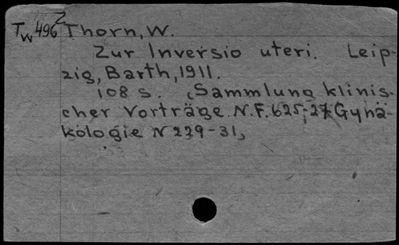 Tw 496 Z Thorn, W.
Zur Inversio uteri. Leip-
zig, Barth, 1911.
108 s. (Sammlung klinis-
cher Vorträge. N.F. 625-27 Gynä-
kologie N 229-31)